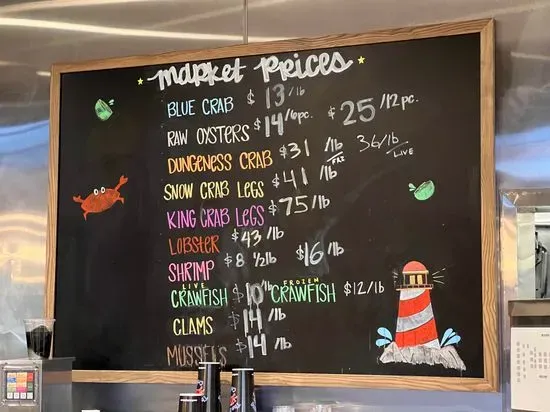 Market Prices
BLUE CRAB $13/lb
RAW OYSTERS $14/6pc. $25/12pc.
DUNGENESS CRAB $31/lb 36/lb LIVE
SNOW CRAB LEGS $41/lb
KING CRAB LEGS $75/lb
LOBSTER $43/lb
SHRIMP $8 ½lb $16/lb
LIVE CRAWFISH $10/lb FROZEN CRAWFISH $12/lb
CLAMS $14/lb
MUSSELS $14/lb